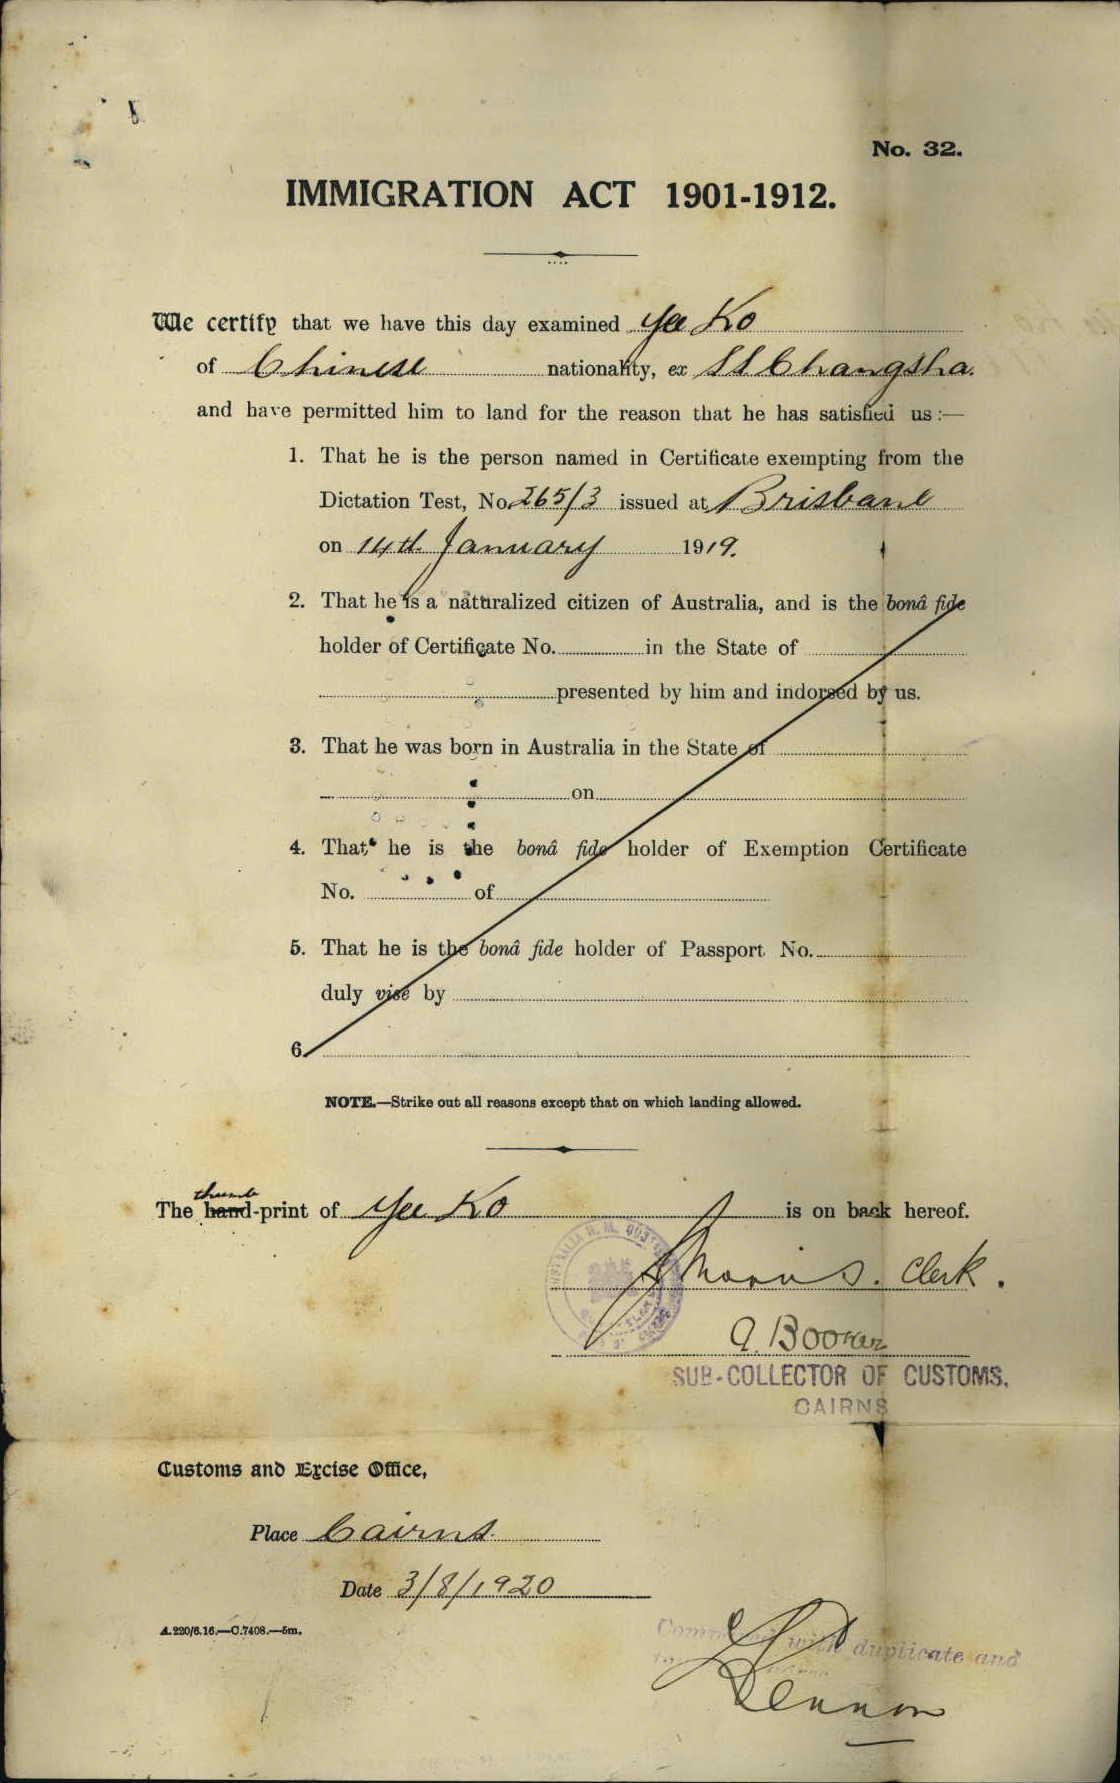 No. 32.
IMMIGRATION ACT 1901-1912.
We certify that we have this day examined Yee Ko
of Chinese nationality, ex SS Changsha.
and have permitted him to land for the reason that he has satisfied us :—
1. That he is the person named in Certificate exempting from the
Dictation Test, No. 265/3 issued at Brisbane
on 14th January 1919.
2. That he is a naturalized citizen of Australia, and is the bonâ fide
holder of Certificate No. in the State of
presented by him and indorsed by us.
3. That he was born in Australia in the State of
on
4. That he is the bonâ fide holder of Exemption Certificate
No. of
5. That he is the bonâ fide holder of Passport No.
duly visé by
6.
NOTE.—Strike out all reasons except that on which landing allowed.
thumb
The hand-print of Yee Ko is on back hereof.
Clerk.
SUB-COLLECTOR OF CUSTOMS.
CAIRNS
Customs and Excise Office,
Place Cairns.
Date 3/8/1920
A.220/6.16.—C.7408.—5m.
with duplicate and
Lennon